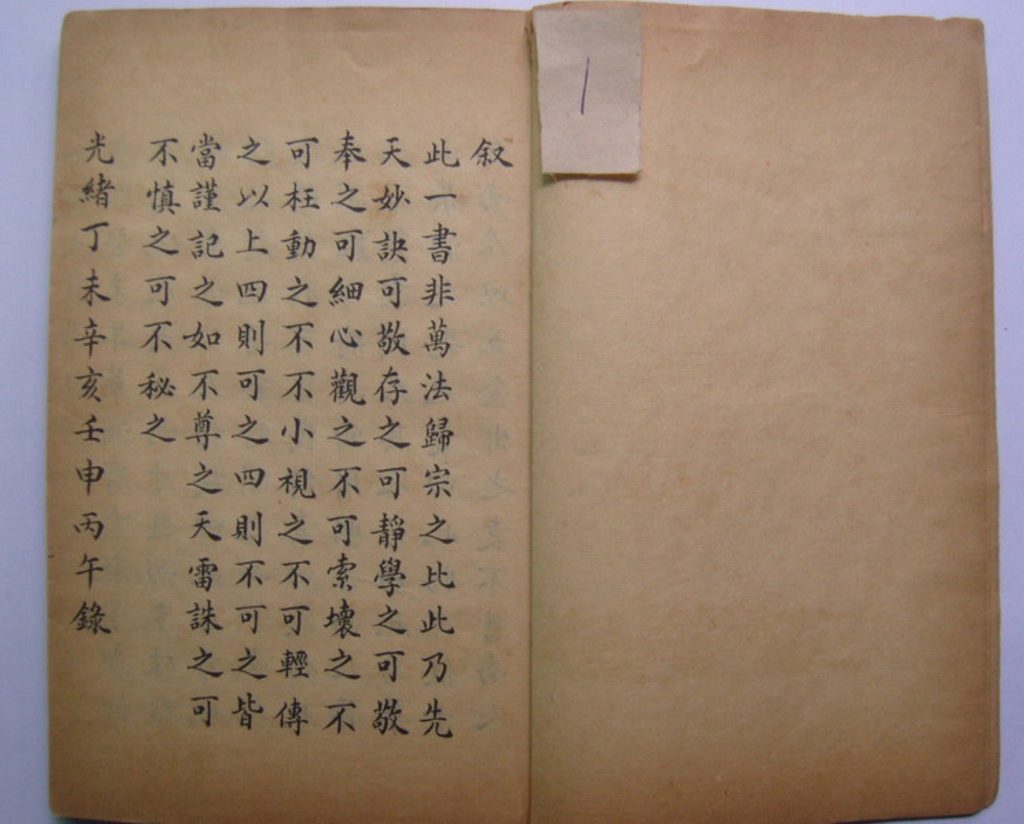 叙
此一書非萬法歸宗之比此乃先
天妙訣可敬存之可靜學之可敬
奉之可細心觀之不可索壞之不
可枉動之不不小視之不可輕傳
之以上四則可之四則不可之皆
當謹記之如不尊之天雷誅之可
不慎之可不秘之
光緒丁未辛亥壬申丙午錄
1